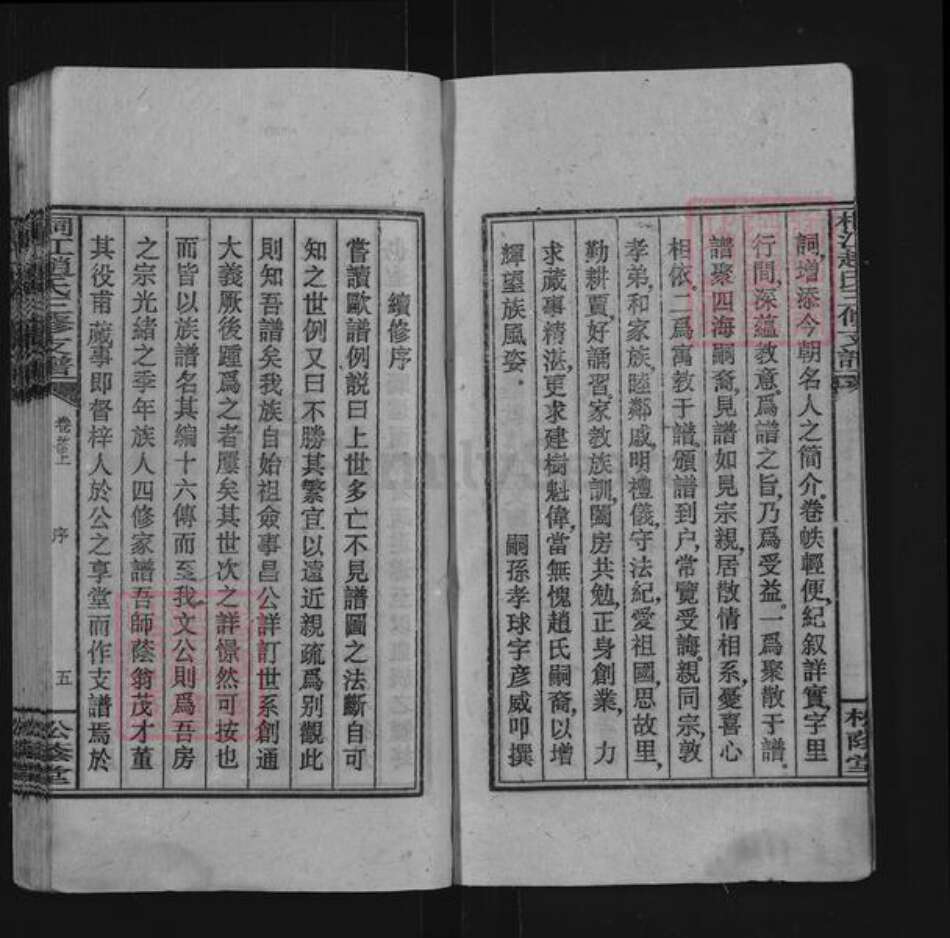 詞，增添今朝名人之簡介。卷帙輕便，紀叙詳實，字里
行間，深蘊教意，爲譜之旨，乃爲受益。一爲聚散于譜。
譜聚四海嗣裔，見譜如見宗親，居散情相系，憂喜心
相依。二爲寓教于譜，頒譜到户，常覽受誨。親同宗，敦
孝弟，和家族，睦鄰戚，明禮儀，守法紀，愛祖國，思故里，
勤耕賈，好誦習，家教族訓，闔房共勉，正身創業，力
求蒇事精湛，更求建樹魁偉，當無愧趙氏嗣裔，以增
輝望族風姿。
嗣孫孝球字彦威叩撰
續修序
嘗讀歐譜例説曰上世多亡不見譜圖之法斷自可
知之世例又曰不勝其繁宜以遠近親疏爲别觀此
則知吾譜矣我族自始祖僉事昌公詳訂世系創通
大義厥後踵爲之者屢矣其世次之詳憬然可按也
而皆以族譜名其編十六傳而至我文公則爲吾房
之宗光緒之季年族人四修家譜吾師蔭翁茂才董
其役甫蒇事即督梓人於公之享堂而作支譜焉於
氏三修支譜
卷首上
序
五